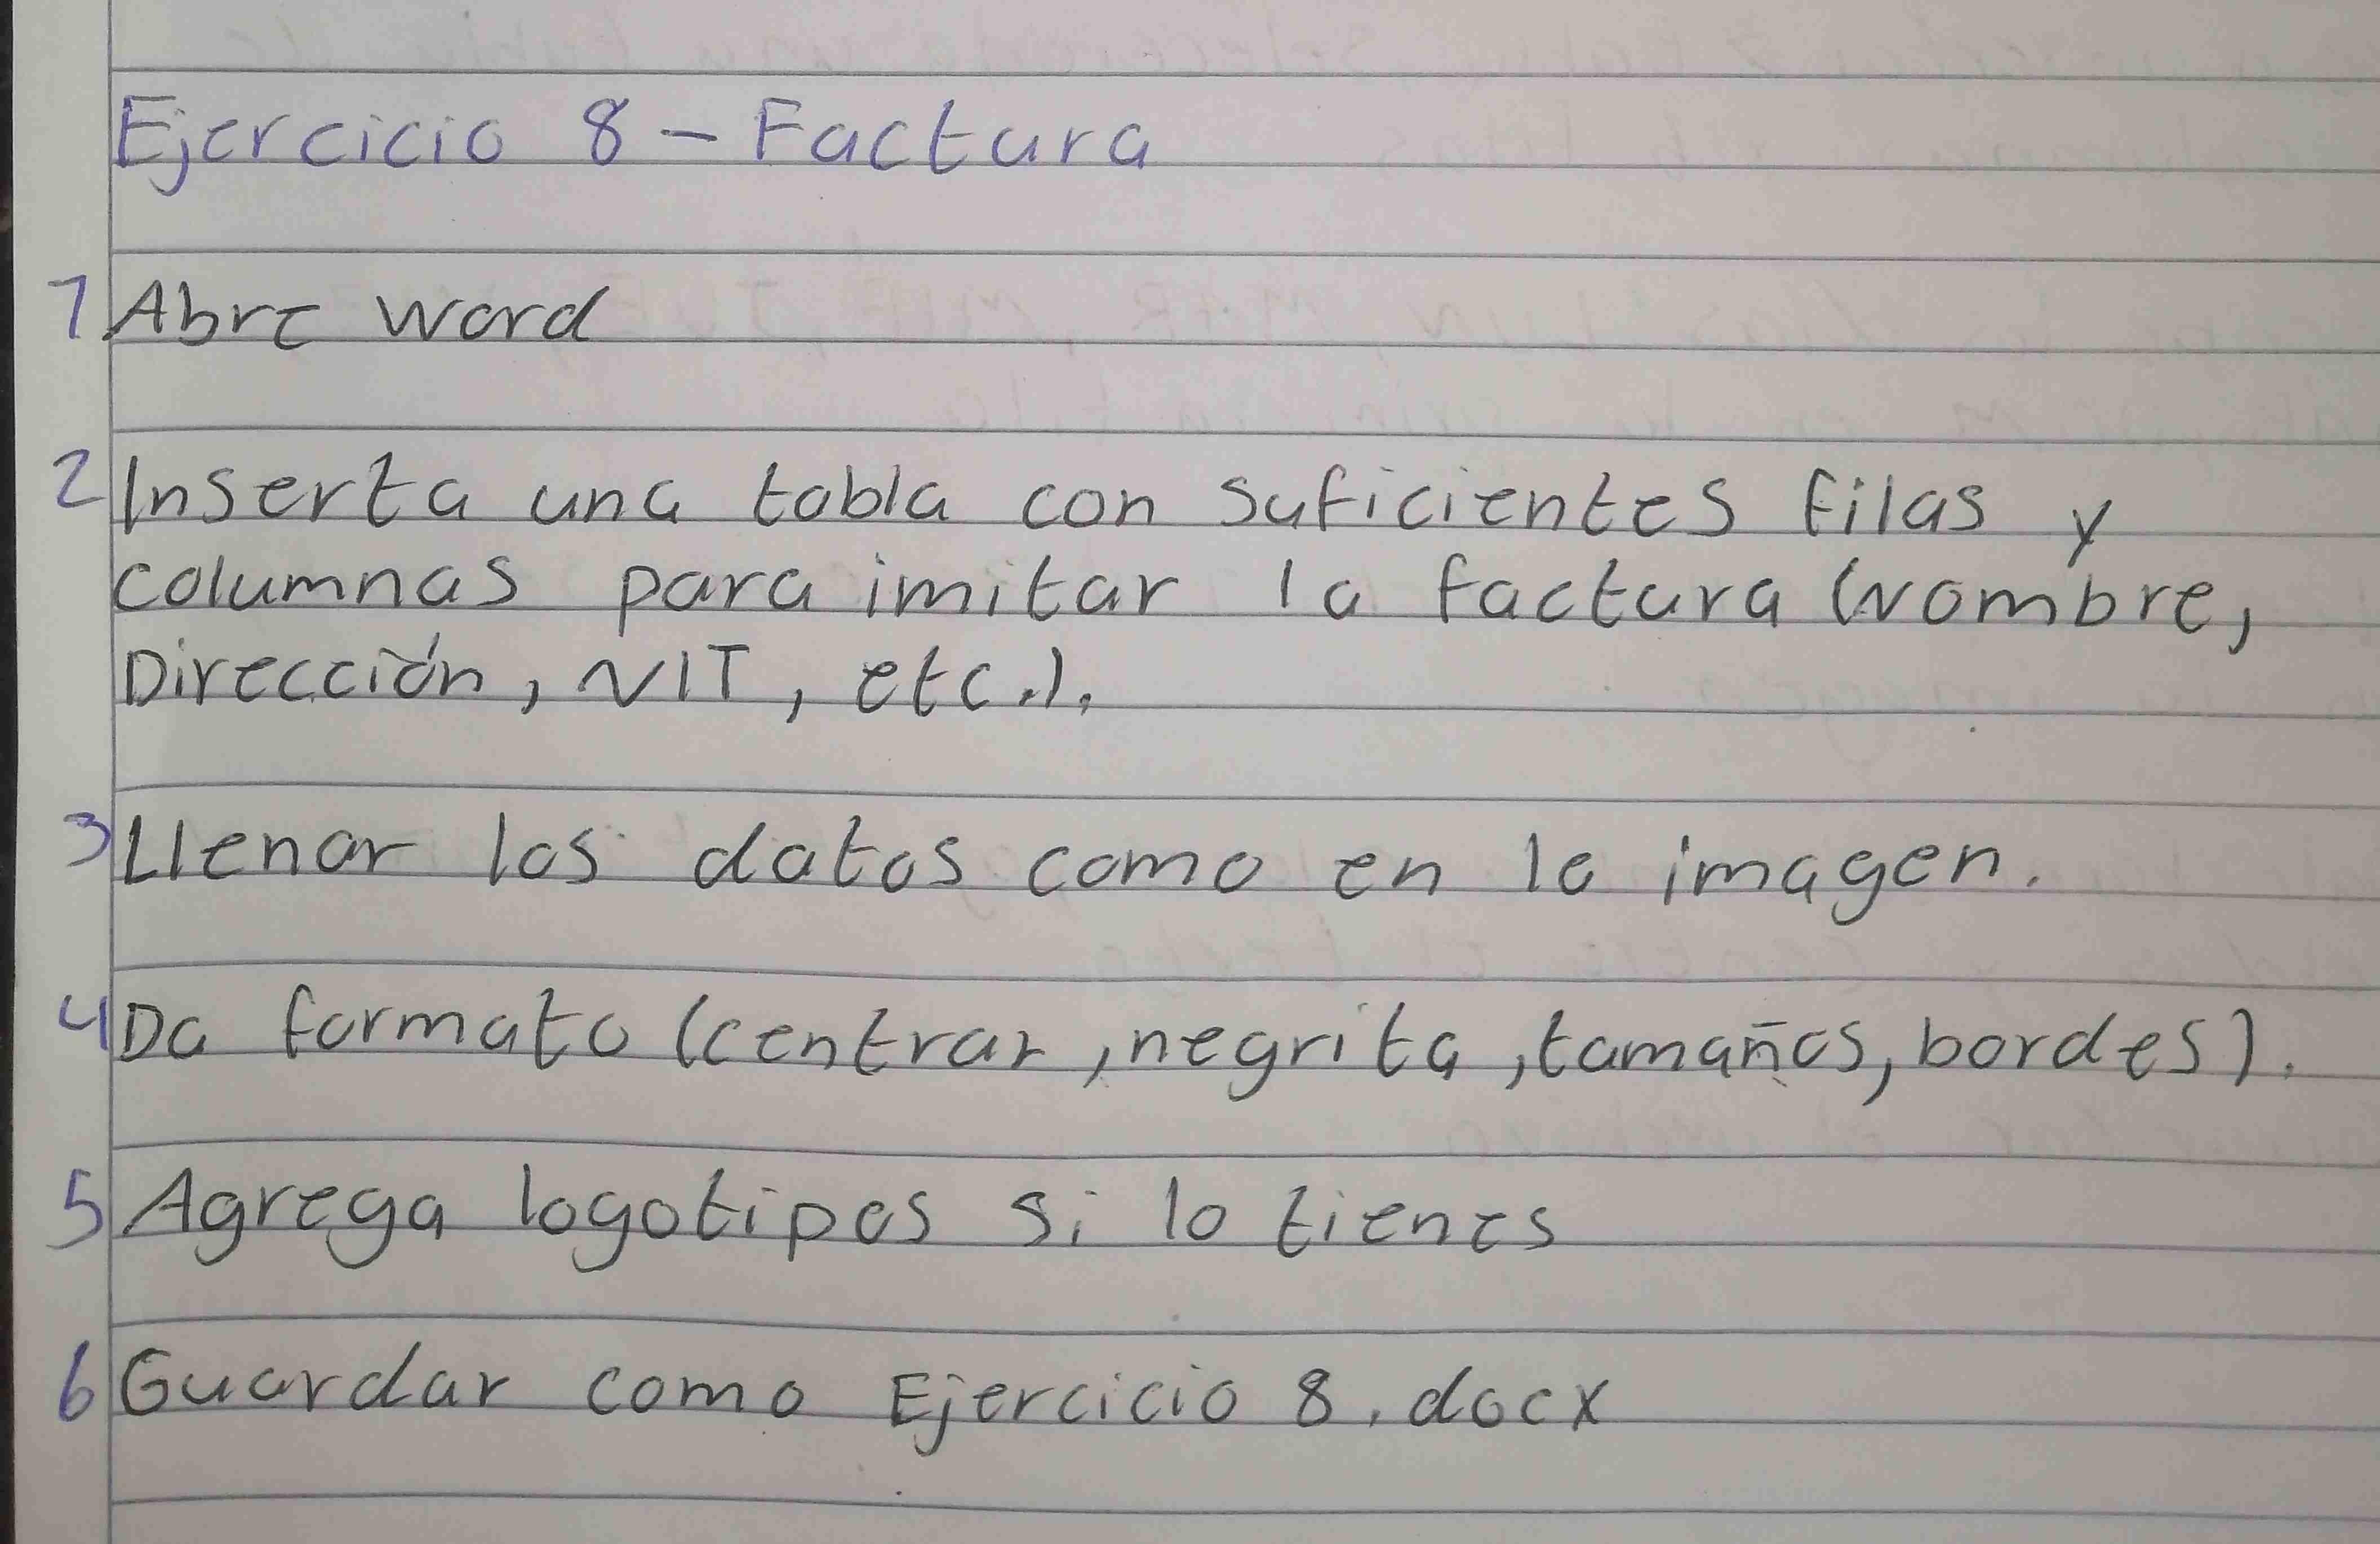 Ejercicio 8 - Factura
1 Abre word
2 Inserta una tabla con suficientes filas y
columnas para imitar la factura (Nombre,
Dirección, NIT, etc.).
3 Llenar los datos como en la imagen.
4 Da formato (centrar, negrita, tamaños, bordes).
5 Agrega logotipos si lo tienes
6 Guardar como Ejercicio 8.docx